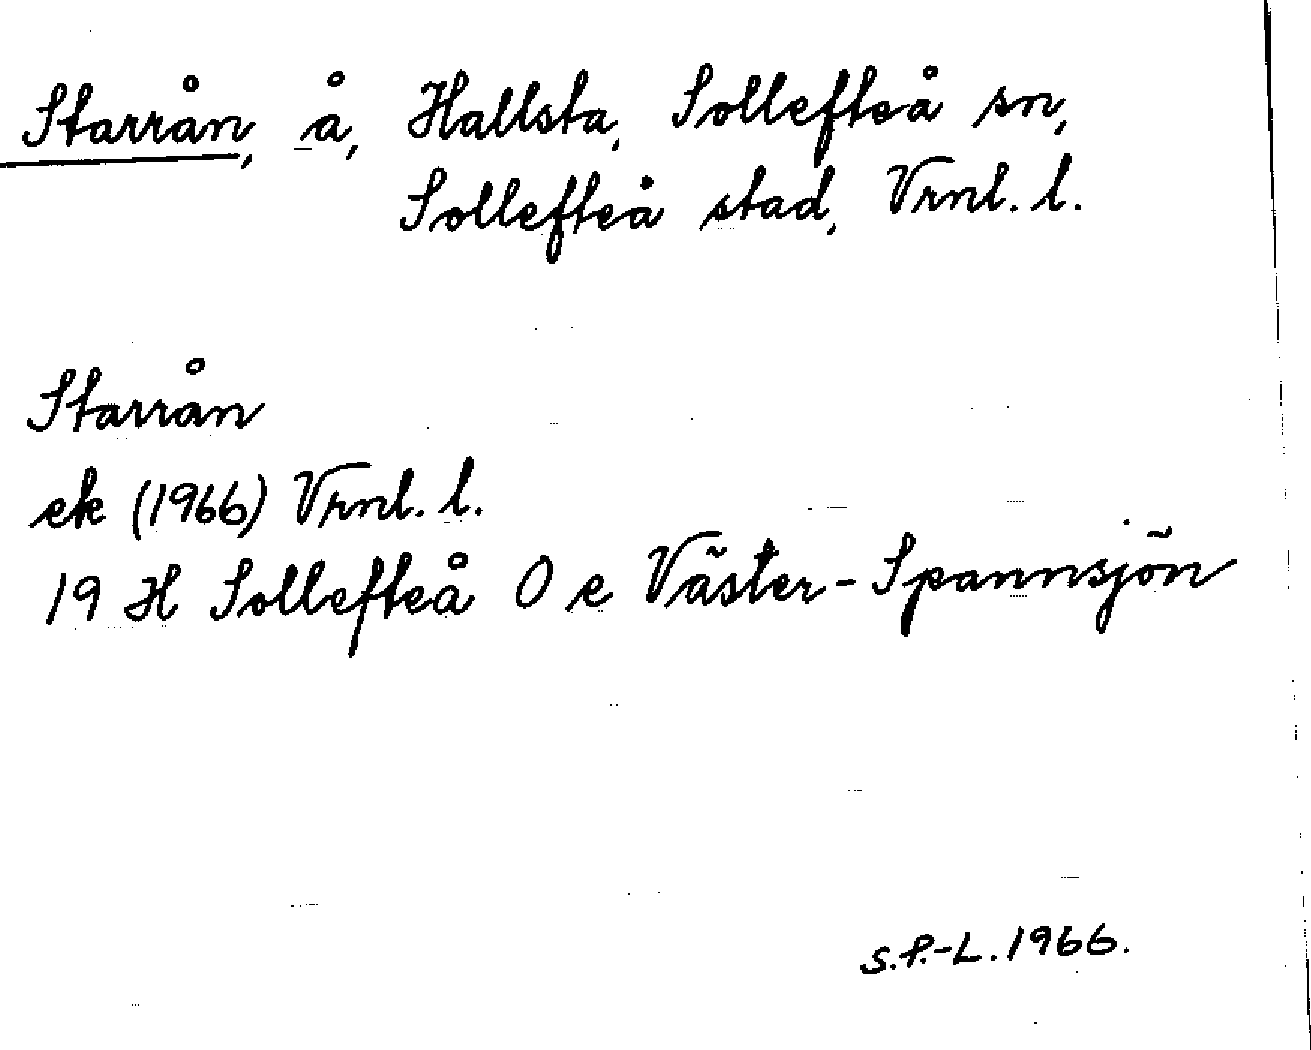 Starrån, å, Hallsta, Sollefteå sn,
Sollefteå stad, Vrnl. l.
Starrån
ek (1966) Vrnl. l.
19 H Sollefteå O e Väster-Spannsjön
S.P.-L. 1966.